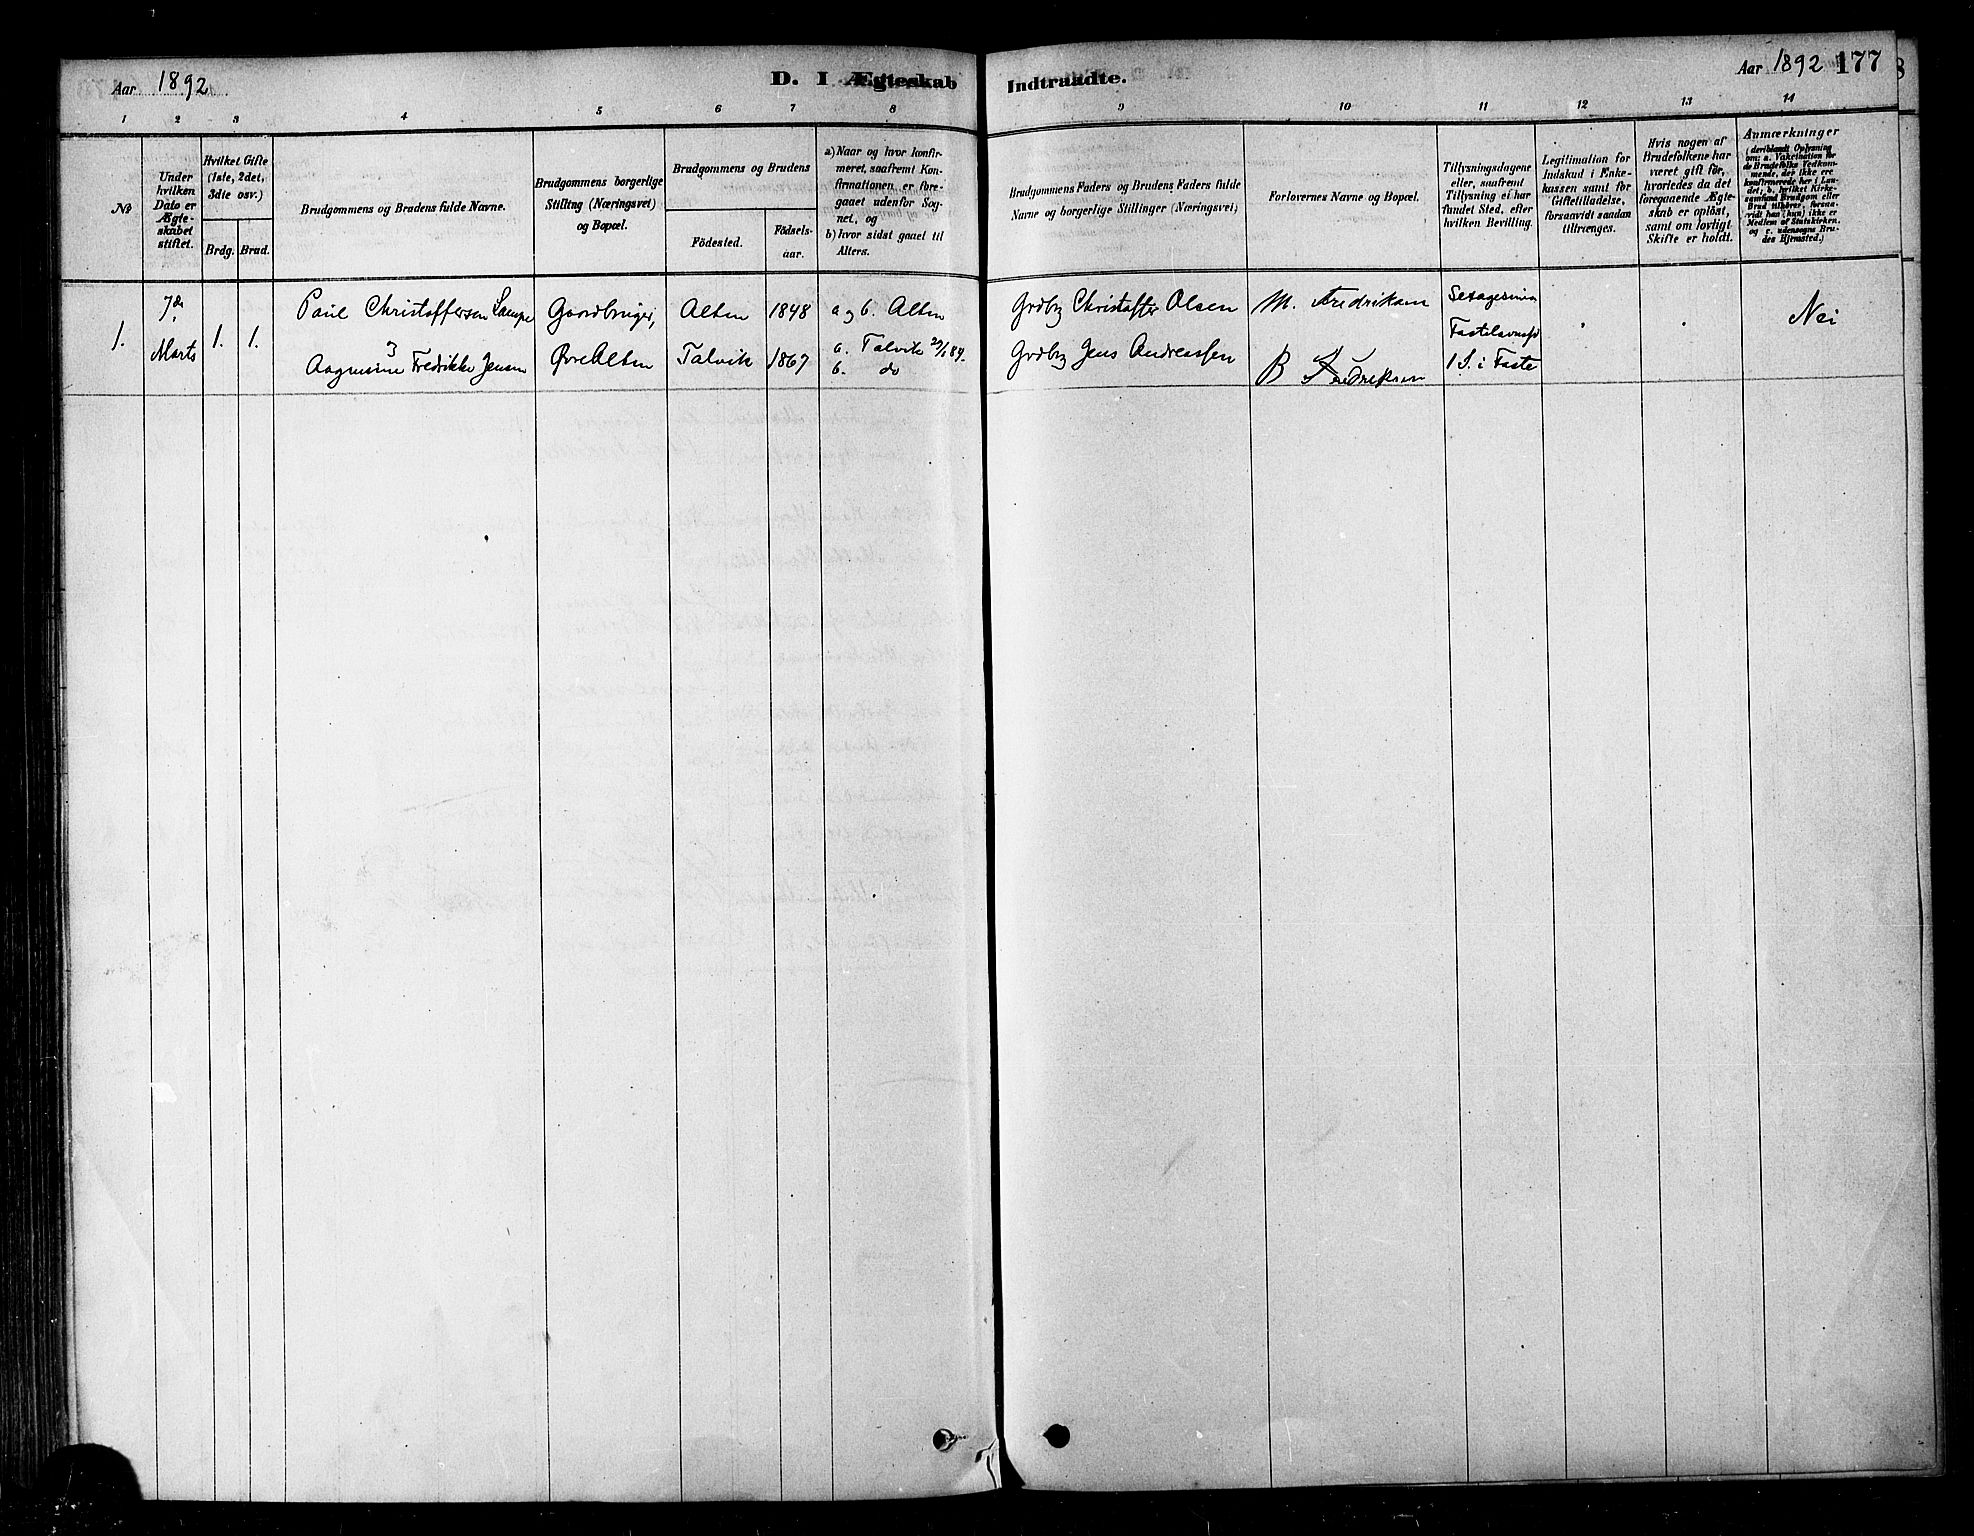 Aar 1892
D. I Ægteskab
Indtraadte.
Aar 1892 177
1 2 3 4 5 6 7 8 9 10 11 12 13 14
No
Under hvilken Dato er Ægteskabet stiftet.
Hvilket Gifte (1ste, 2det, 3die osv.)
Brdg. Brud.
Brudgommens og Brudens fulde Navne.
Brudgommens borgerlige Stilling (Næringsvei) og Bopæl.
Brudgommens og Brudens
Födested.
Födselsaar.
a) Naar og hvor konfirmeret, saafremt Konfirmationen er foregaaet udenfor Sognet, og
b) hvor sidst gaaet til Alters.
Brudgommens Faders og Brudens Faders fulde Navne og borgerlige Stillinger (Næringsvei)
Forlovernes Navne og Bopæl.
Tillysningsdagene eller, saafremt Tillysning ei har fundet Sted, efter hvilken Bevilling.
Legitimation for Indskud i Enkekassen samt for Giftetilladelse, forsaavidt saadan tiltrænges.
Hvis nogen af Brudefolkene har været gift för, hvorledes da det foregaaende Ægteskab er oplöst, samt om lovligt Skifte er holdt.
Anmærkninger (deriblandt Oplysning om: a. Vakcination for de Brudefolks Vedkommende, der ikke ere konfirmerede her i Landet; b. hvilket Kirkesamfund Brudgom eller Brud tilhörer, forsaavidt han (hun) ikke er Medlem af Statskirken, og c. udensogns Brudes Hjemsted.)
1. 7de Marts 1. 1.
Paul Christoffersen Gaardbruger, Alten 1848 a og b. Alten
Fredrikke Jensen Øvre Alten Talvik 1867 a. Talvik 84.
b. do
Grdbg Christoffer Olsen M. Fredriksen
Grdbg Jens Andreassen B Fredriksen
1 S. i Faste
Nei